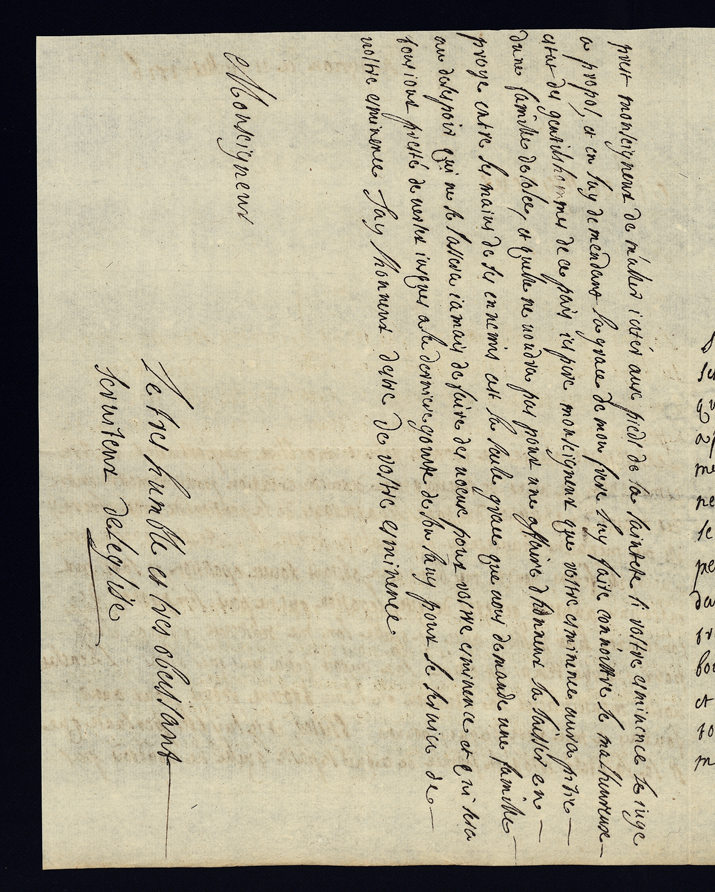 prest monseigneur de maller ieter aux pieds de sa sainteté si vostre eminence le iuge
a propos, et en luy demendant la grace de mon frere luy faire connoittre le malheureux
estat des gentilshommes de ce païs iespere monseigneur que vostre eminence aura pitie
dune famille desolee, et quelle ne voudra pas pour une affaire dhonneur la laisser en
proye entre les mains de ses ennemis est la seule grace que vous demande une famille
au desespoir qui ne se lassera iamais de faire des voeux pour vostre eminence et qui sera
tousiours preste de verser iusques a la derniere goutte de son sang pour le service de
vostre eminence Jay lhonneur destre de vostre eminence
Monseigneur
Le tres humble et tres obeissant
serviteur deleglise